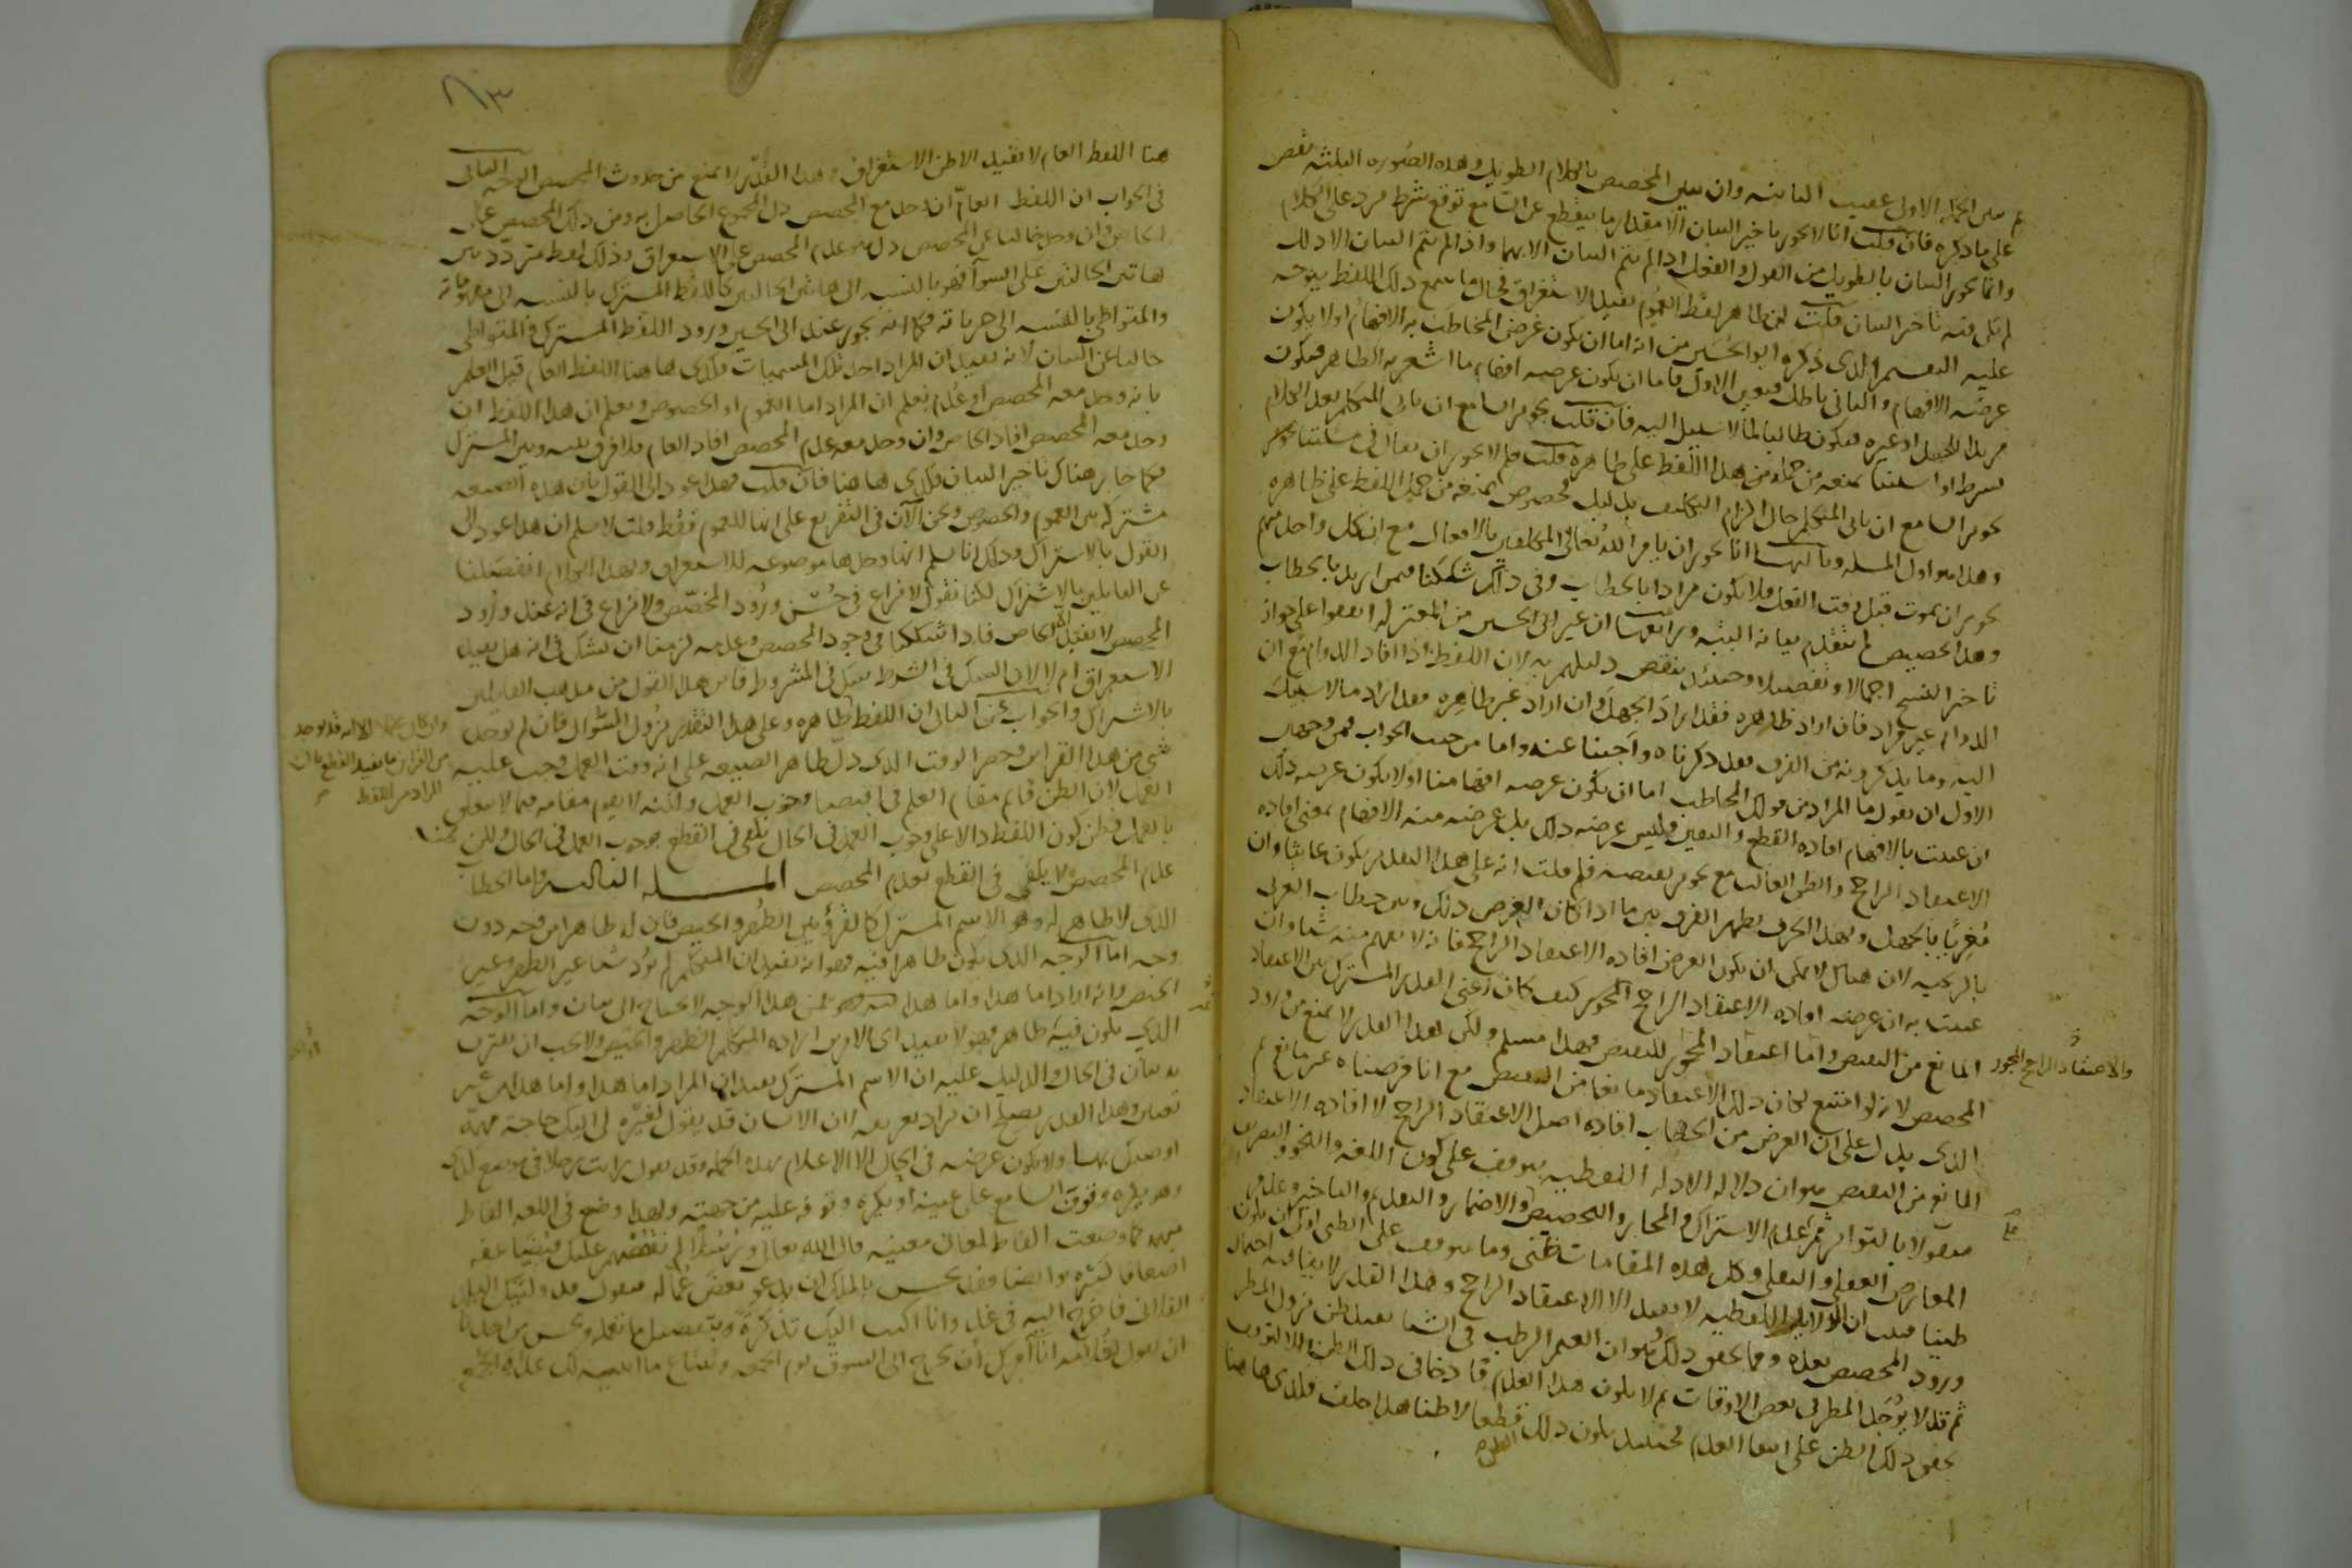 ثم بين الجملة الاولى عقيب الثانية وان يبين المخصص بالكلام الطويل وهذه الصورة الثلثة نقض
على ما ذكره فان قلت انا لا نجوز تاخير البيان الا مقدار ما ينقطع عن السامع توقع شرط يرد على الكلام
وانما نجوز البيان بالطويل من القول والفعل اذا لم يتم البيان الا بهما واذا لم يتم البيان الا بذلك
لم يكن فيه تاخير البيان قلت ان ظاهر لفظ العموم يفيد الاستغراق فحال ما سمع ذلك اللفظ يتوجه
عليه التقسيم الذى ذكره ابو الحسين من انه اما ان يكون غرض المخاطب به الافهام او لا يكون
غرضه الافهام والثانى باطل فتعين الاول فاما ان يكون غرضه افهام ما اشعر به الظاهر فيكون
مريدا للجهل او غيره فيكون طالبا لما لا سبيل اليه فان قلت تجويز السامع ان ياتى المتكلم بعد الكلام
بشرط او استثناء يمنعه من حمله من هذا اللفظ على ظاهره قلت فلم لا يجوز ان يقال فى مسئلتنا
تجويز السامع ان ياتى المتكلم حال الزام التكليف بدليل مخصوص يمنعه من حمل اللفظ على ظاهره
وهذا هو اول المسئلة وثالثها انا نجوز ان يامر الله تعالى المكلفين بالافعال مع ان كل واحد منهم
يجوز ان يموت قبل وقت الفعل فلا يكون مرادا بالخطاب وفى ذلك شككنا فيمن اريد بالخطاب
وهذا تخصيص لم يتقدم بيانه البتة ورابعها ان غير ابى الحسين من المعتزلة اتفقوا على جواز
تاخير النسخ اجمالا وتفصيلا وحينئذ ينقض دليلهم به لان اللفظ اذا افاد الدوام مع ان
الدوام غير مراد فان اراد ظاهره فقد اراد الجهل وان اراد غير ظاهره فقد اراد ما لا سبيل
اليه وما يذكرونه من الفرق فقد ذكرناه واجبنا عنه واما من حيث الجواب فمن وجهين
الاول ان نقول ما المراد من قولك المخاطب اما ان يكون غرضه افهامنا او لا يكون غرضه ذلك
ان عنيت بالافهام افادة القطع واليقين فليس غرضه ذلك بل غرضه منه الافهام بمعنى افادة
الاعتقاد الراجح والظن الغالب مع تجويز نقيضه فلم قلت انه على هذا التقدير يكون عابثا وان
مُغرِيًا بالجهل وبهذا الحرف يظهر الفرق بين ما اذا كان الغرض ذلك وبين خطاب العربى
بالزنجية لان هناك لا يمكن ان يكون الغرض افادة الاعتقاد الراجح فانه لا يفهم منه شيئا وان
عنيت به ان غرضه افادة الاعتقاد الراجح المجوز كيف كان اعنى القدر المشترك بين الاعتقاد
المانع من النقيض واما اعتقاد المجوز للنقيض فهذا مسلم ولكن لهذا القدر لا يمنع من ورود
والاعتقاد الراجح المجوز
المخصص لانه لو امتنع لكان ذلك الاعتقاد مانعا من النقيض مع انا فرضناه غير مانع ثم
الذى يدل على ان الغرض من الخطاب افادة اصل الاعتقاد الراجح لا افادة الاعتقاد
المانع من النقيض هو ان دلالة الادلة اللفظية يتوقف على كون اللغة والنحو والتصريف
منقولا بالتواتر ثم على عدم الاشتراك والمجاز والتخصيص والاضمار والتقديم والتاخير وعدم
المعارض العقلى والنقلى وكل هذه المقامات ظنى وما يتوقف على الظنى اولى ان يكون
ظنيا فثبت ان الدلايل اللفظية لا يفيد الا الاعتقاد الراجح وهذا القدر لا ينافيه احتمال
ورود المخصص بعده ومما يحقق ذلك هو ان الغيم الرطب فى الشتاء يفيد ظن نزول المطر
ثم قد لا يوجد المطر فى بعض الاوقات ثم لا يكون هذا العدم قادحا فى ذلك الظن والا لتوقف
تحقق ذلك الظن على انتفاء العدم فحينئذ يكون ذلك قطعا لا ظنا هذا خلف فكذى هاهنا
الظن

٨٣
هنا اللفظ العام لا يفيد الا ظن الاستغراق وهذا القدر لا يمنع من حدوث المخصص الوجه الثانى
فى الجواب ان اللفظ العام ان وجد مع المخصص دل المجموع الحاصل به ومن ذلك المخصص على
الخاص وان وجد خاليا عن المخصص دل هو مع عدم المخصص على الاستغراق وذلك لفظ متردد بين
هاتين الحالتين على السوآ فهو بالنسبة الى هاتين الحالتين كاللفظ المشترك بالنسبة الى مفهوماته
والمتواطى بالنسبة الى جزياته فكما انه يجوز عند ابى الحسين ورود اللفظ المشترك والمتواطى
خاليا عن البيان لانه يفيد ان المراد احد تلك المسميات فكذى هاهنا اللفظ العام قبل العلم
بانه وجد معه المخصص او عدم يعلم ان المراد اما العموم او الخصوص ويعلم ان هذا اللفظ ان
وجد معه المخصص افاد الخاص وان وجد معه عدم المخصص افاد العام فلا فرق بينه وبين المشترك
فكما جاز هناك تاخير البيان فكذى هاهنا فان قلت فهذا عود الى القول بان هذه الصيغة
مشتركة بين العموم والخصوص ونحن الآن فى التفريع على انها للعموم فقط قلت لا نسلم ان هذا عود الى
القول بالاشتراك وذلك انا نسلم انها وحدها موضوعة للاستغراق وبهذا الكلام انفصلنا
عن القايلين بالاشتراك لكنا نقول لا نزاع فى حُسن ورود المخصص ولا نزاع فى انه عند ورود
المخصص لا يفيد الا الخاص فاذا شككنا فى وجود المخصص وعدمه لزمنا ان نشك فى انه هل يفيد
الاستغراق ام لا لان الشك فى الشرط شك فى المشروط فاين هذا القول من مذهب القايلين
بالاشتراك والجواب عن الثانى ان اللفظ ظاهره وعلى هذا التقدير يزول السؤال فان لم يوجد
وان كان محتملا الا انه قد يوجد
من القراين ما يفيد القطع بان
المراد من اللفظ
شى من هذا القراين وحضر الوقت الذى دل ظاهر الصيغة على انه وقت العمل وجب عليه
العمل لان الظن قايم مقام العلم فى اقتضا وجوب العمل ولكنه لا يقوم مقامه فيما لا يتعلق
بالعمل فظن كون اللفظ دالا على وجوب العمل فى الحال يكفى فى القطع بوجوب العمل فى الحال ولكن
عدم المخصص لا يكفى فى القطع بعدم المخصص المسئلة الثالثة واما الخطاب
الذى لا ظاهر له وهو الاسم المشترك كالقرؤ بين الطهر والحيض فان له ظاهرا من وجه دون
وجه اما الوجه الذى يكون ظاهرا فيه فهو انه يفيد ان المتكلم لم يُرد شيئا غير الطهر وغير
الحيض وانه اراد اما هذا واما هذا فمن هذا الوجه لا يحتاج الى بيان واما الوجه
الذى يكون فيه ظاهر فهو لا يفيد اى الامرين اراده المتكلم الطهر والحيض ولا يجب ان يقترن
به بيان فى الحال والدليل عليه ان الاسم المشترك يفيد ان المراد اما هذا واما هذا من غير
تعيين وهذا القدر يصلح ان يراد تعريفه لان الانسان قد يقول لغيره لى اليك حاجة مهمة
اوصيك بها ولا يكون غرضه فى الحال الا الاعلام بهذه الجملة وقد يقول رايت رجلا فى موضع كذا
وهو يكره وقوف السامع على عينه او يكره وقوفه عليه من جهته ولهذا وضع فى اللغة الفاظ
مبهمة كما وضعت الفاظ لمعان معينة قال الله تعالى ومنهم من لم نقصص عليك
اضعافا كثيرة وايضا فقد يحسن بالملك ان يدعو بعض عُمّاله فيقول قد وليتك البلد
الفلانى فاخرج اليه فى غد وانا اكتب اليك تذكرة بتفصيل ما تعمله ويحسن من احدنا
ان يقول لغلامه انا آمرك ان تخرج الى السوق يوم الجمعة وتبتاع ما ابينه لك غداة الجمعة